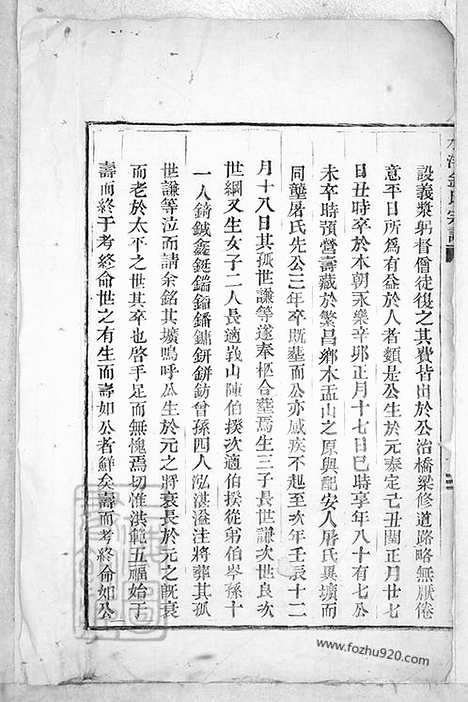 設義漿躬督僧徒復之其費皆出於公治橋梁修道路略無厭倦
意平日所為有益於人者類是公生於元泰定己丑閏正月廿七
日丑時卒於本朝永樂辛卯正月十七日巳時享年八十有七公
未卒時預營壽藏於繁昌鄉木盂山之原與配安人屠氏異壙而
同壟屠氏先公三年卒既塟而公亦感疾不起至次年壬辰十二
月十八日其孤世謙等遂奉柩合塟焉生三子長世謙次世良次
世綱又生女子二人長適峩山陳伯揆次適伯揆從弟伯岑孫十
一人錡鉞鑫鋌鎦鐇鏞鈃鉼鈁曾孫四人泓湛溢注將葬其孤
世謙等泣而請余銘其壙嗚呼公生於元之將衰長於元之既衰
而老於太平之世其卒也啓手足而無愧焉切惟洪範五福始于
壽而終于考終命世之有生而壽如公者鮮矣壽而考終命如公
氏宗譜
www.fozhu920.com